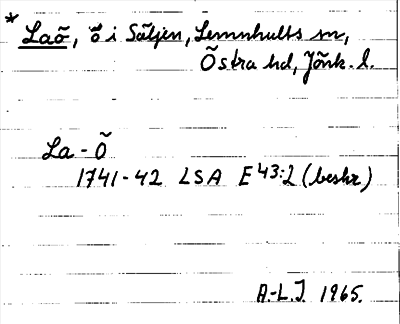 * Laö, ö i Säljen, Lemnhults sn,
Östra hd, Jönk. l.
La-Ö
1741-42 LSA E43:2 (beskr)
A.-L.J. 1965.